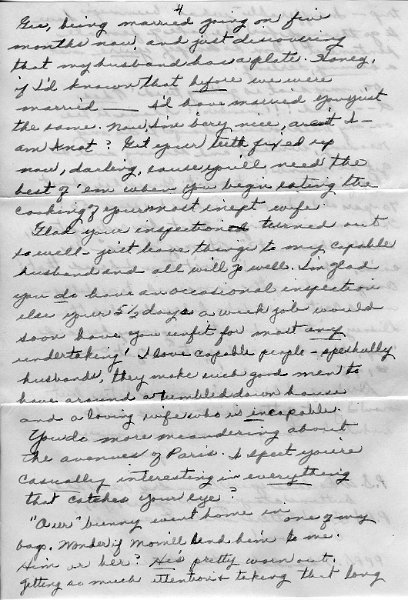 4
Gee, being married going on five
months now and just discovering
that my husband has a plate. Honey,
if I'd known that before we were
married — I'd have married you just
the same. Now, I'm bery nice, arent I -
am I not? Get your teeth fixed up
now, darling, cause you'll need the
best of 'em when you begin eating the
cooking of your most inept wife.
Glad your inspection turned out
so well - just leave things to my capable
husband and all will go well. I'm glad
you do have an occasional inspection
else your 5 1/2 days a week job would
soon have you unfit for most any
undertaking! I love capable people - speshully
husbands, they make such good men to
have around a tumbled down house
and a loving wife who is incapable.
You do more meandering about
the avenues of Paris. I spect you're
casually interesting in everything
that catches your eye?
"Our" bunny went home in one of my
bags. Wonder if Mom'll send him to me.
Him or her? He's pretty worn out.
Getting so much attention & taking that long